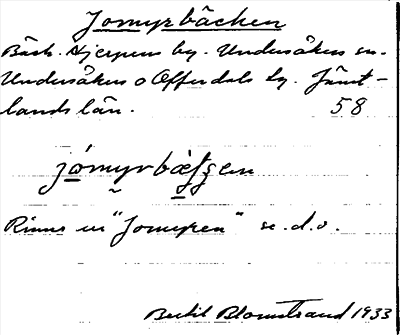 Jomyrbäcken
Bäck. Hjerpens by. Undersåkers sn.
Undersåkers o Offerdals tg. Jämt-
lands län. 58
jómyrbätşen
Rinns ur "Jomyren" se. d. o.
Bertil Blomstrand 1933